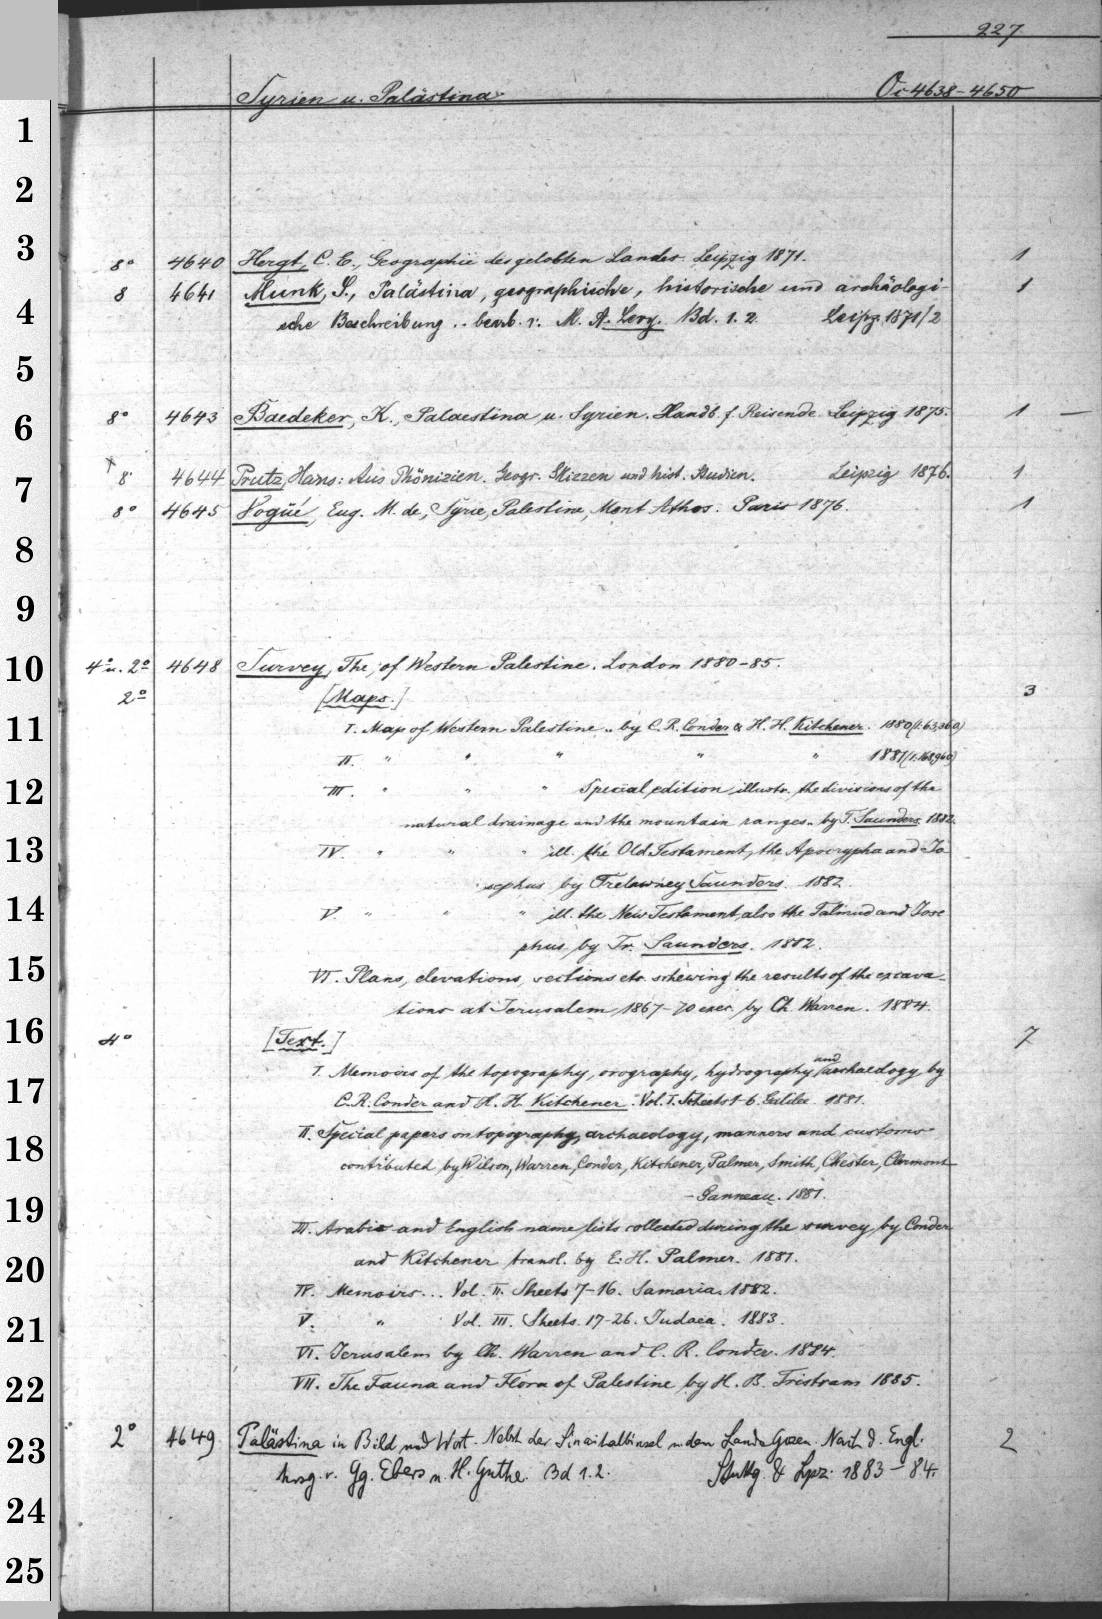 227
Syrien u. Palästina. Oc 4638-4650
1
2
3 8° 4640 Hergt, C. E., Geographie des gelobten Landes. Leipzig 1871. 1
8 4641 Munk, S., Palästina, geographische, historische und archäologi- 1
4 sche Beschreibung .. bearb. v. M. A. Levy. Bd. 1. 2. Leipz. 1871/2
5
6 8° 4643 Baedeker, K., Palaestina u. Syrien. Handb. f. Reisende. Leipzig 1875. 1 —
7 8° 4644 Prutz, Hans: Aus Phönizien. Geogr. Skizzen und hist. Studien. Leipzig 1876. 1
8° 4645 Vogüé, Eug. M. de, Syrie, Palestine, Mont Athos. Paris 1876. 1
8
9
10 4° u. 2° 4648 Survey, The, of Western Palestine. London 1880-85.
2° [Maps.] 3
11 I. Map of Western Palestine .. by C. R. Conder & H. H. Kitchener. 1880 (1:63,360)
II. " " " " " 1881 (1:168,960)
12 III. " " " Special edition illustr. the divisions of the
natural drainage and the mountain ranges .. by T. Saunders. 1882.
13 IV. " " " ill. the Old Testament, the Apocrypha and Jo-
sephus by Trelawney Saunders. 1882.
14 V. " " " ill. the New Testament, also the Talmud and Jose
phus, by Tr. Saunders. 1882.
15 VI. Plans, elevations, sections etc. shewing the results of the excava-
tions at Jerusalem, 1867-70 exec. by Ch. Warren. 1884.
16 4° [Text.] 7
I. Memoirs of the topography, orography, hydrography and archaeology, by
17 C. R. Conder and H. H. Kitchener. Vol. I. Sheets 1-6. Galilee. 1881.
II. Special papers on topography, archaeology, manners and customs
18 contributed by Wilson, Warren, Conder, Kitchener, Palmer, Smith, Chester, Clermont
19 -Ganneau. 1881.
III. Arabic and English name lists collected during the survey by Conder
20 and Kitchener transl. by E. H. Palmer. 1881.
IV. Memoirs ... Vol. II. Sheets 7-16. Samaria. 1882.
21 V. " Vol. III. Sheets. 17-26. Judaea. 1883.
VI. Jerusalem by Ch. Warren and C. R. Conder. 1884.
22 VII. The Fauna and Flora of Palestine by H. B. Tristram 1885.
23 2° 4649 Palästina in Bild und Wort. Nebst der Sinaihalbinsel u. dem Lande Gosen. Nach d. Engl. 2
hrsg. v. Gg. Ebers u. H. Guthe. Bd 1. 2. Stuttg. & Lpz. 1883-84.
24
25